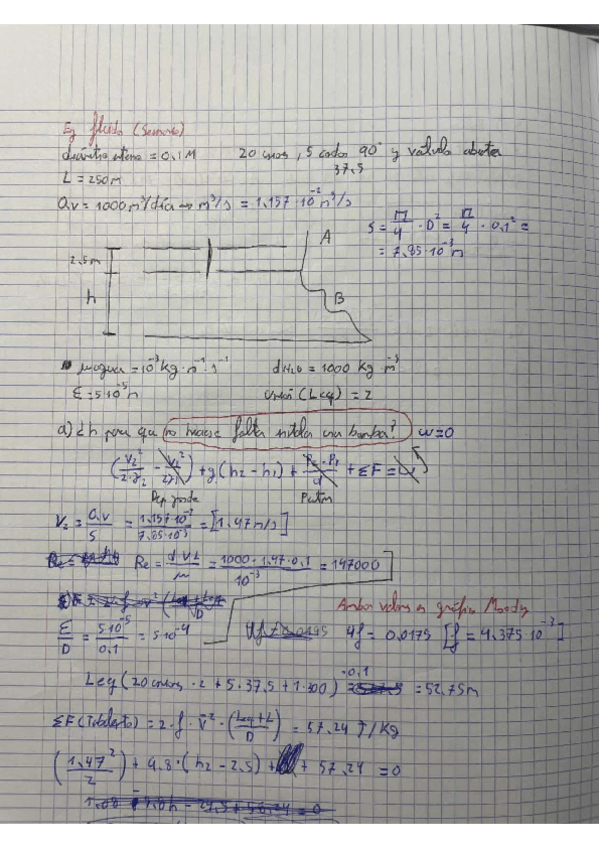 Ej fluido (Seminario)
diámetro interno = 0.1 M 20 uniones, 5 codos 90° y válvula abierta
37.5
L = 250 m
Q.v = 1000 m³/día → m³/s = 1.157 · 10⁻² m³/s
S = π/4 · D² = π/4 · 0.1² =
= 7.85 · 10⁻³ m
A
2.5 m
h
B
μagua = 10⁻³ kg · m⁻¹ · s⁻¹ dH₂O = 1000 Kg · m⁻³
ε = 5·10⁻⁵ m unión (Leq) = 2
a) ¿h para que no hiciese falta instalar una bomba? w=0
(V₂²/2·γ₂ - V₁²/2γ₁) + g (h₂ - h₁) + P₂ - P₁/d + ΣF = W
Dep grande P atm
V₂ = Q.v/S = 1.157·10⁻²/7.85·10⁻³ = [1.47 m/s]
Re = d·V·L/μ = 1000 · 1.47 · 0.1/10⁻³ = 147000
Ambos valores en gráfica Moody
ε/D = 5·10⁻⁵/0.1 = 5·10⁻⁴ 4f = 0.0175 [f = 4.375·10⁻³]
Leq (20 uniones · 2 + 5 · 37.5 + 1 · 300) · 0.1 = 52.75 m
ΣF (Tub recto) = 2 · f · V² · (Leq + L/D) = 57.24 J/Kg
(1.47²/2) + 9.8 · (h₂ - 2.5) + 57.24 = 0